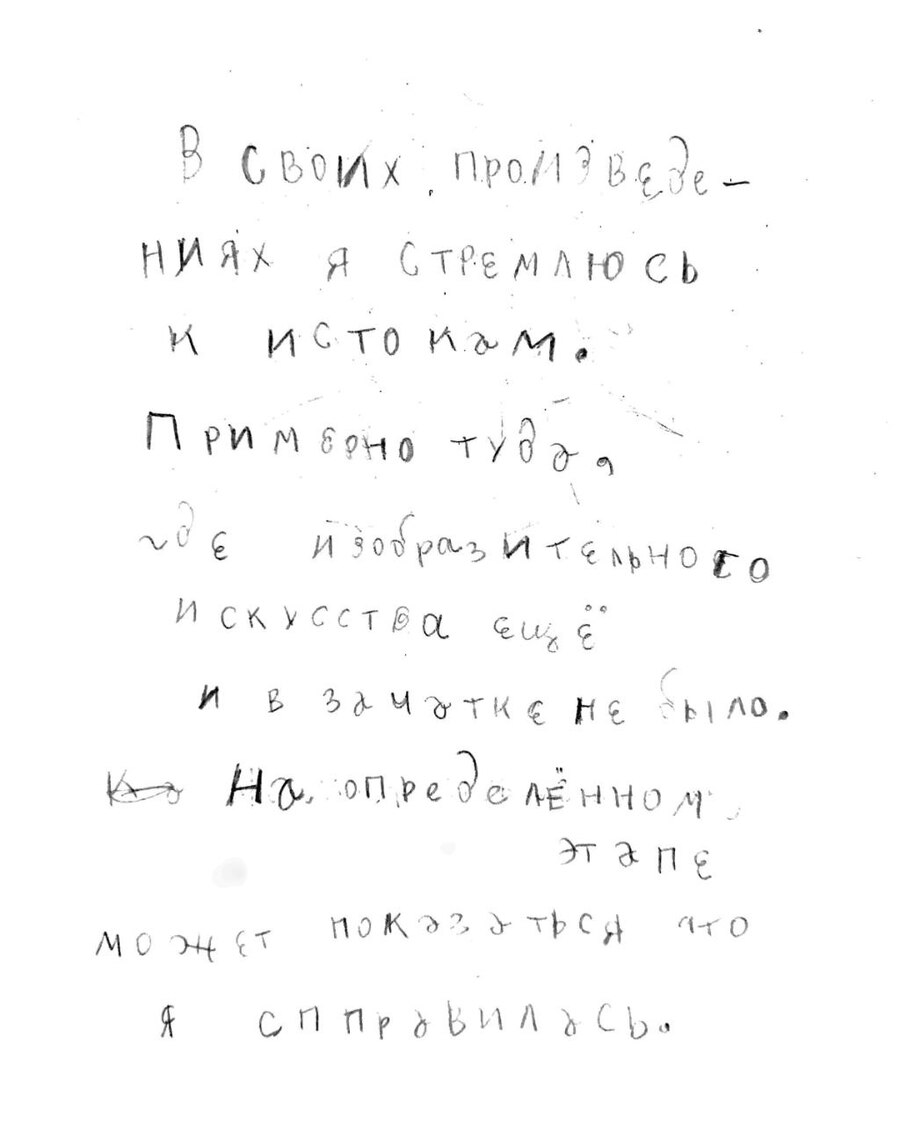 В своих произведе-
ниях я стремлюсь
к истокам.
Примерно туда,
где изобразительного
искусства ещё
и в зачатке не было.
На определённом
этапе
может показаться что
я спправилась.